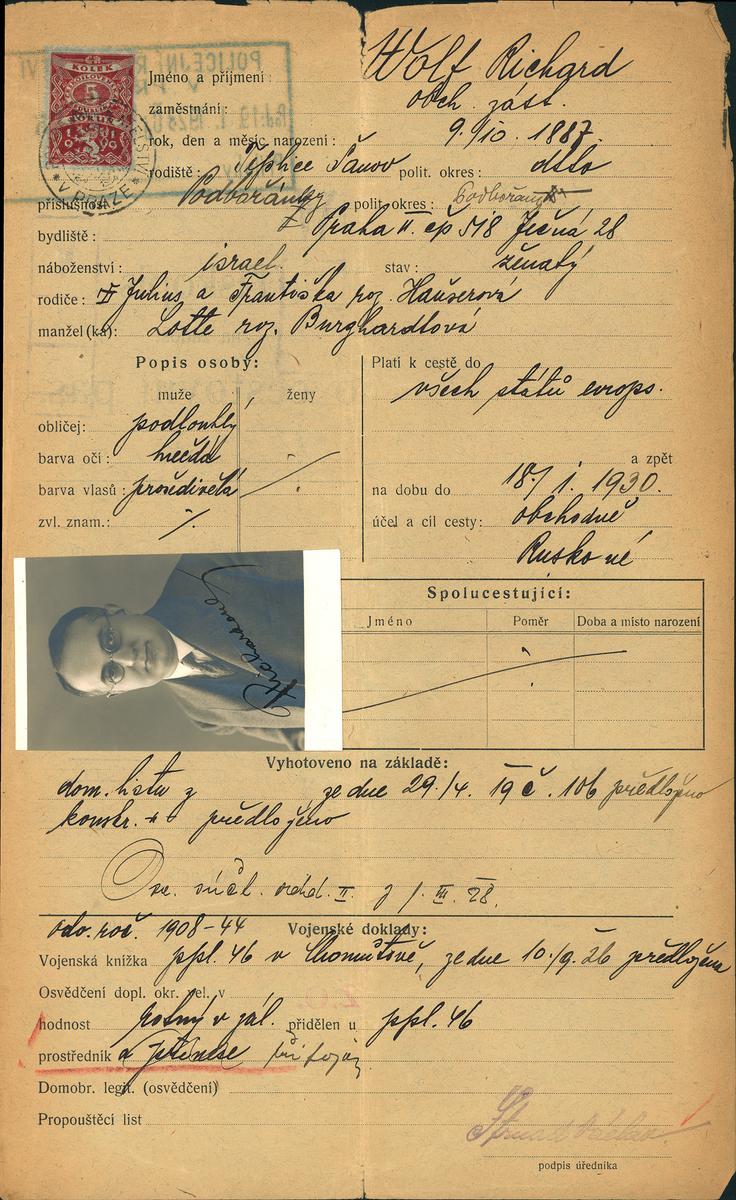 KOLEK
5
1919
V PRAZE
Jméno a příjmení: Wolf Richard
zaměstnání: obch. zást.
rok, den a měsíc narození: 9./10. 1887.
rodiště: Teplice Šanov polit. okres: dtto
příslušnost: Podbořánky polit. okres: Podbořany
bydliště: Praha II. čp 518 Ječná 28
náboženství: israel. stav: ženatý
rodiče: Julius a Františka roz. Hauserová
manžel(ka): Lotte roz. Burghardtová
Popis osoby:
muže ženy
obličej: podlouhlý
barva očí: hnědá
barva vlasů: prošedivělá
zvl. znam.: /.
Platí k cestě do
všech států evrops.
a zpět
na dobu do 18./I. 1930.
účel a cíl cesty: obchodně
Rusko
Spolucestující:
Jméno Poměr Doba a místo narození
Vyhotoveno na základě:
dom. listu z ze dne 29./4. 19 č. 106 předloženo
konskr. předloženo
Osv. súčt. II. z 1. III. 28.
odv. roč. 1908-44 Vojenské doklady:
Vojenská knížka ppl. 46 v Chomutově, ze dne 10./9. 26 předložena
Osvědčení dopl. okr. vel. v
hodnost rotný v zál. přidělen u ppl. 46
prostředník a
Domobr. legit. (osvědčení)
Propouštěcí list
podpis úředníka